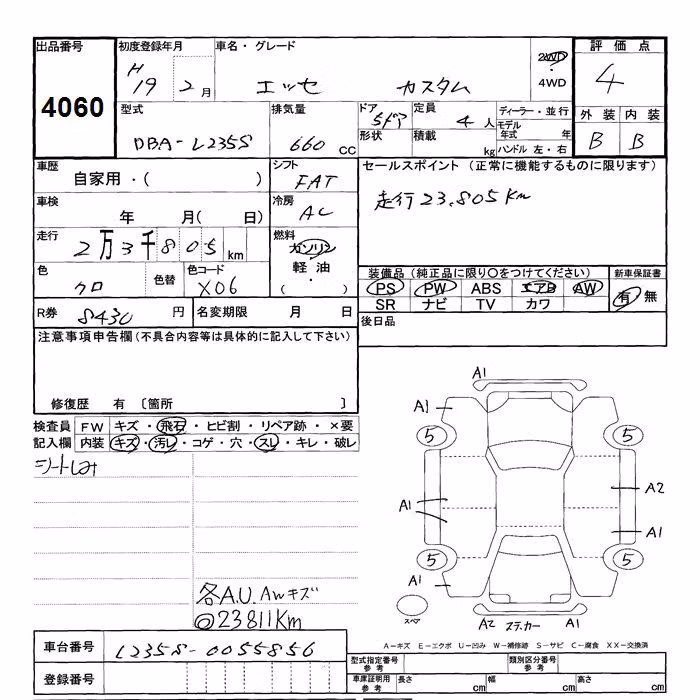 出品番号 4060
初度登録年月 H19 2月
車名・グレード エッセ カスタム
2WD・4WD
評価点 4
外装 B 内装 B
型式 DBA-L235S
排気量 660 CC
ドア 5ドア
形状
定員 4人
積載 kg
ディーラー・並行
モデル年式 年
ハンドル 左・右
車歴 自家用・( )
シフト FAT
セールスポイント (正常に機能するものに限ります)
走行23.805Km
車検 年 月( 日)
冷房 AC
走行 2万3千805km
燃料 ガソリン 軽油・( )
色 クロ 色替
色コード X06
装備品 (純正品に限り○をつけてください)
PS PW ABS エアB AW
SR ナビ TV カワ
新車保証書 有 無
R券 8430 円
名変期限 月 日
後日品
注意事項申告欄 (不具合内容等は具体的に記入して下さい)
修復歴 有 〔箇所 〕
検査員記入欄
FW キズ・飛石・ヒビ割・リペア跡・×要
内装 キズ・汚レ・コゲ・穴・スレ・キレ・破レ
各A.U.AWキズ
◎23811Km
A1
A1
5 5
A1 A2
A1
5 5
A1
スペア
A2 ステッカー A1
車台番号 L235S-0055856
登録番号
A-キズ E-エクボ U-凹み W-補修跡 S-サビ C-腐食 XX-交換済
型式指定番号 参考
類別区分番号 参考
車庫証明用 参考 長さ cm 幅 cm 高さ cm